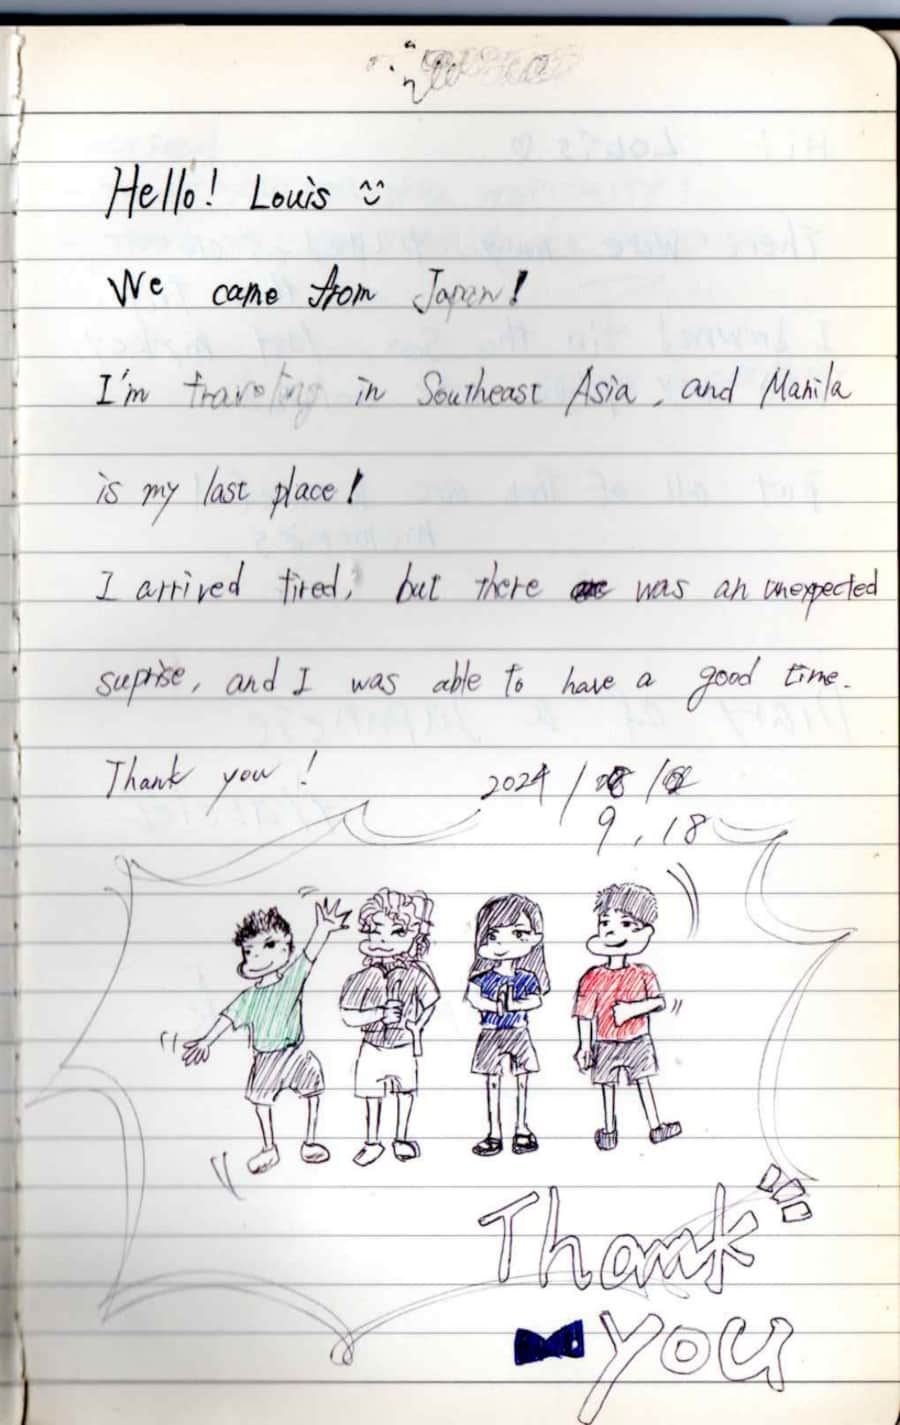 Hello! Louis
We came from Japan!
I'm traveling in Southeast Asia, and Manila
is my last place!
I arrived tired, but there was an unexpected
suprise, and I was able to have a good time.
Thank you! 2024 /
9.18
Thank
you